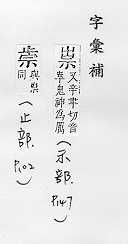 字彙補
祟 又辛聿切音鬼神為厲 (示部. P.147)
與祟同 (止部. P.102)